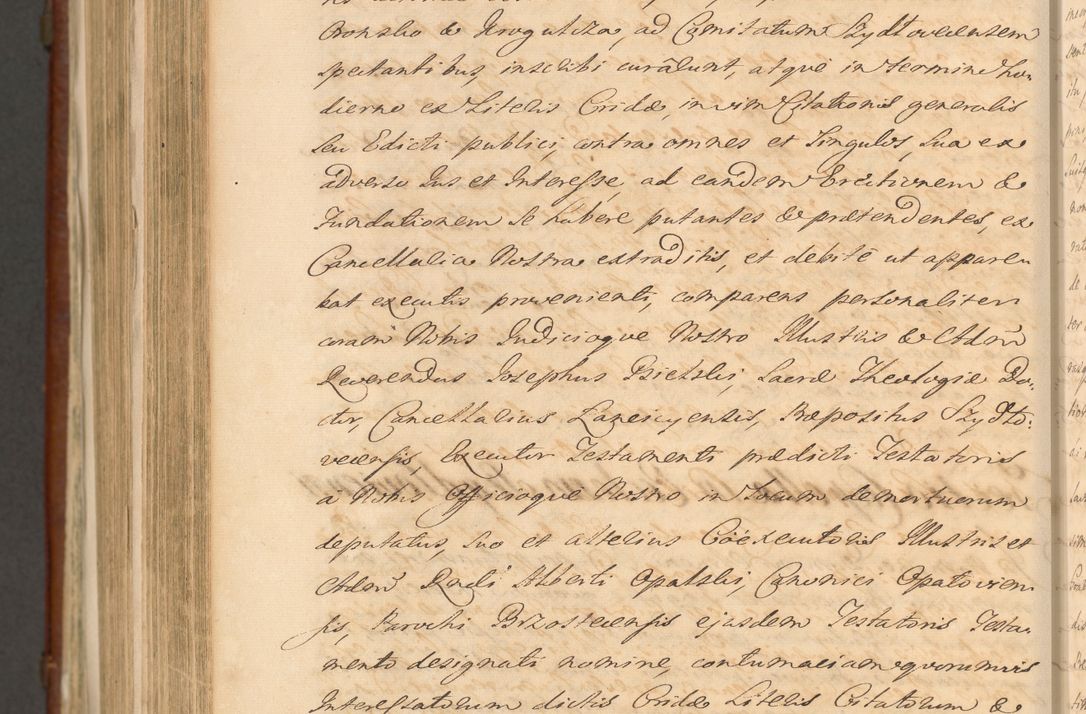 Gronsko & Jurogulica, ad Comitatum Szydłoveciensem
spectantibus, inscribi curârunt, atque in termino ho-
dierno ex Literis Cridæ, in vim Citationis generalis
seu Edicti publici, contra omnes et Singulos, sua ex
adverso Jus et Interesse, ad eandem Erectionem &
Fundationem se habere putantes & prætendentes, ex
Cancellaria Nostra extraditis, et debitè ut appare-
bat executis provenienti, comparens personaliter
coram Nobis Judicioque Nostro Illustris & Adm̃
Reverendus Josephus Bielski, Sacræ Theologiæ Do-
ctor, Cancellarius Præpositus Szydło-
veciensis, Executor Testamenti prædicti Testatoris
à Nobis Officioque Nostro in Locum demortuorum
deputatus, suo et alterius Coëxecutoris Illustris et
Adm̃ Rndi Alberti Opalski, Canonici Opatovien-
sis, Parochi Brzostecensis ejusdem Testatoris Testa-
mento designati nomine, contumaciam quorumvis
Interessatorum dictis Cridæ Literis Citatorum &